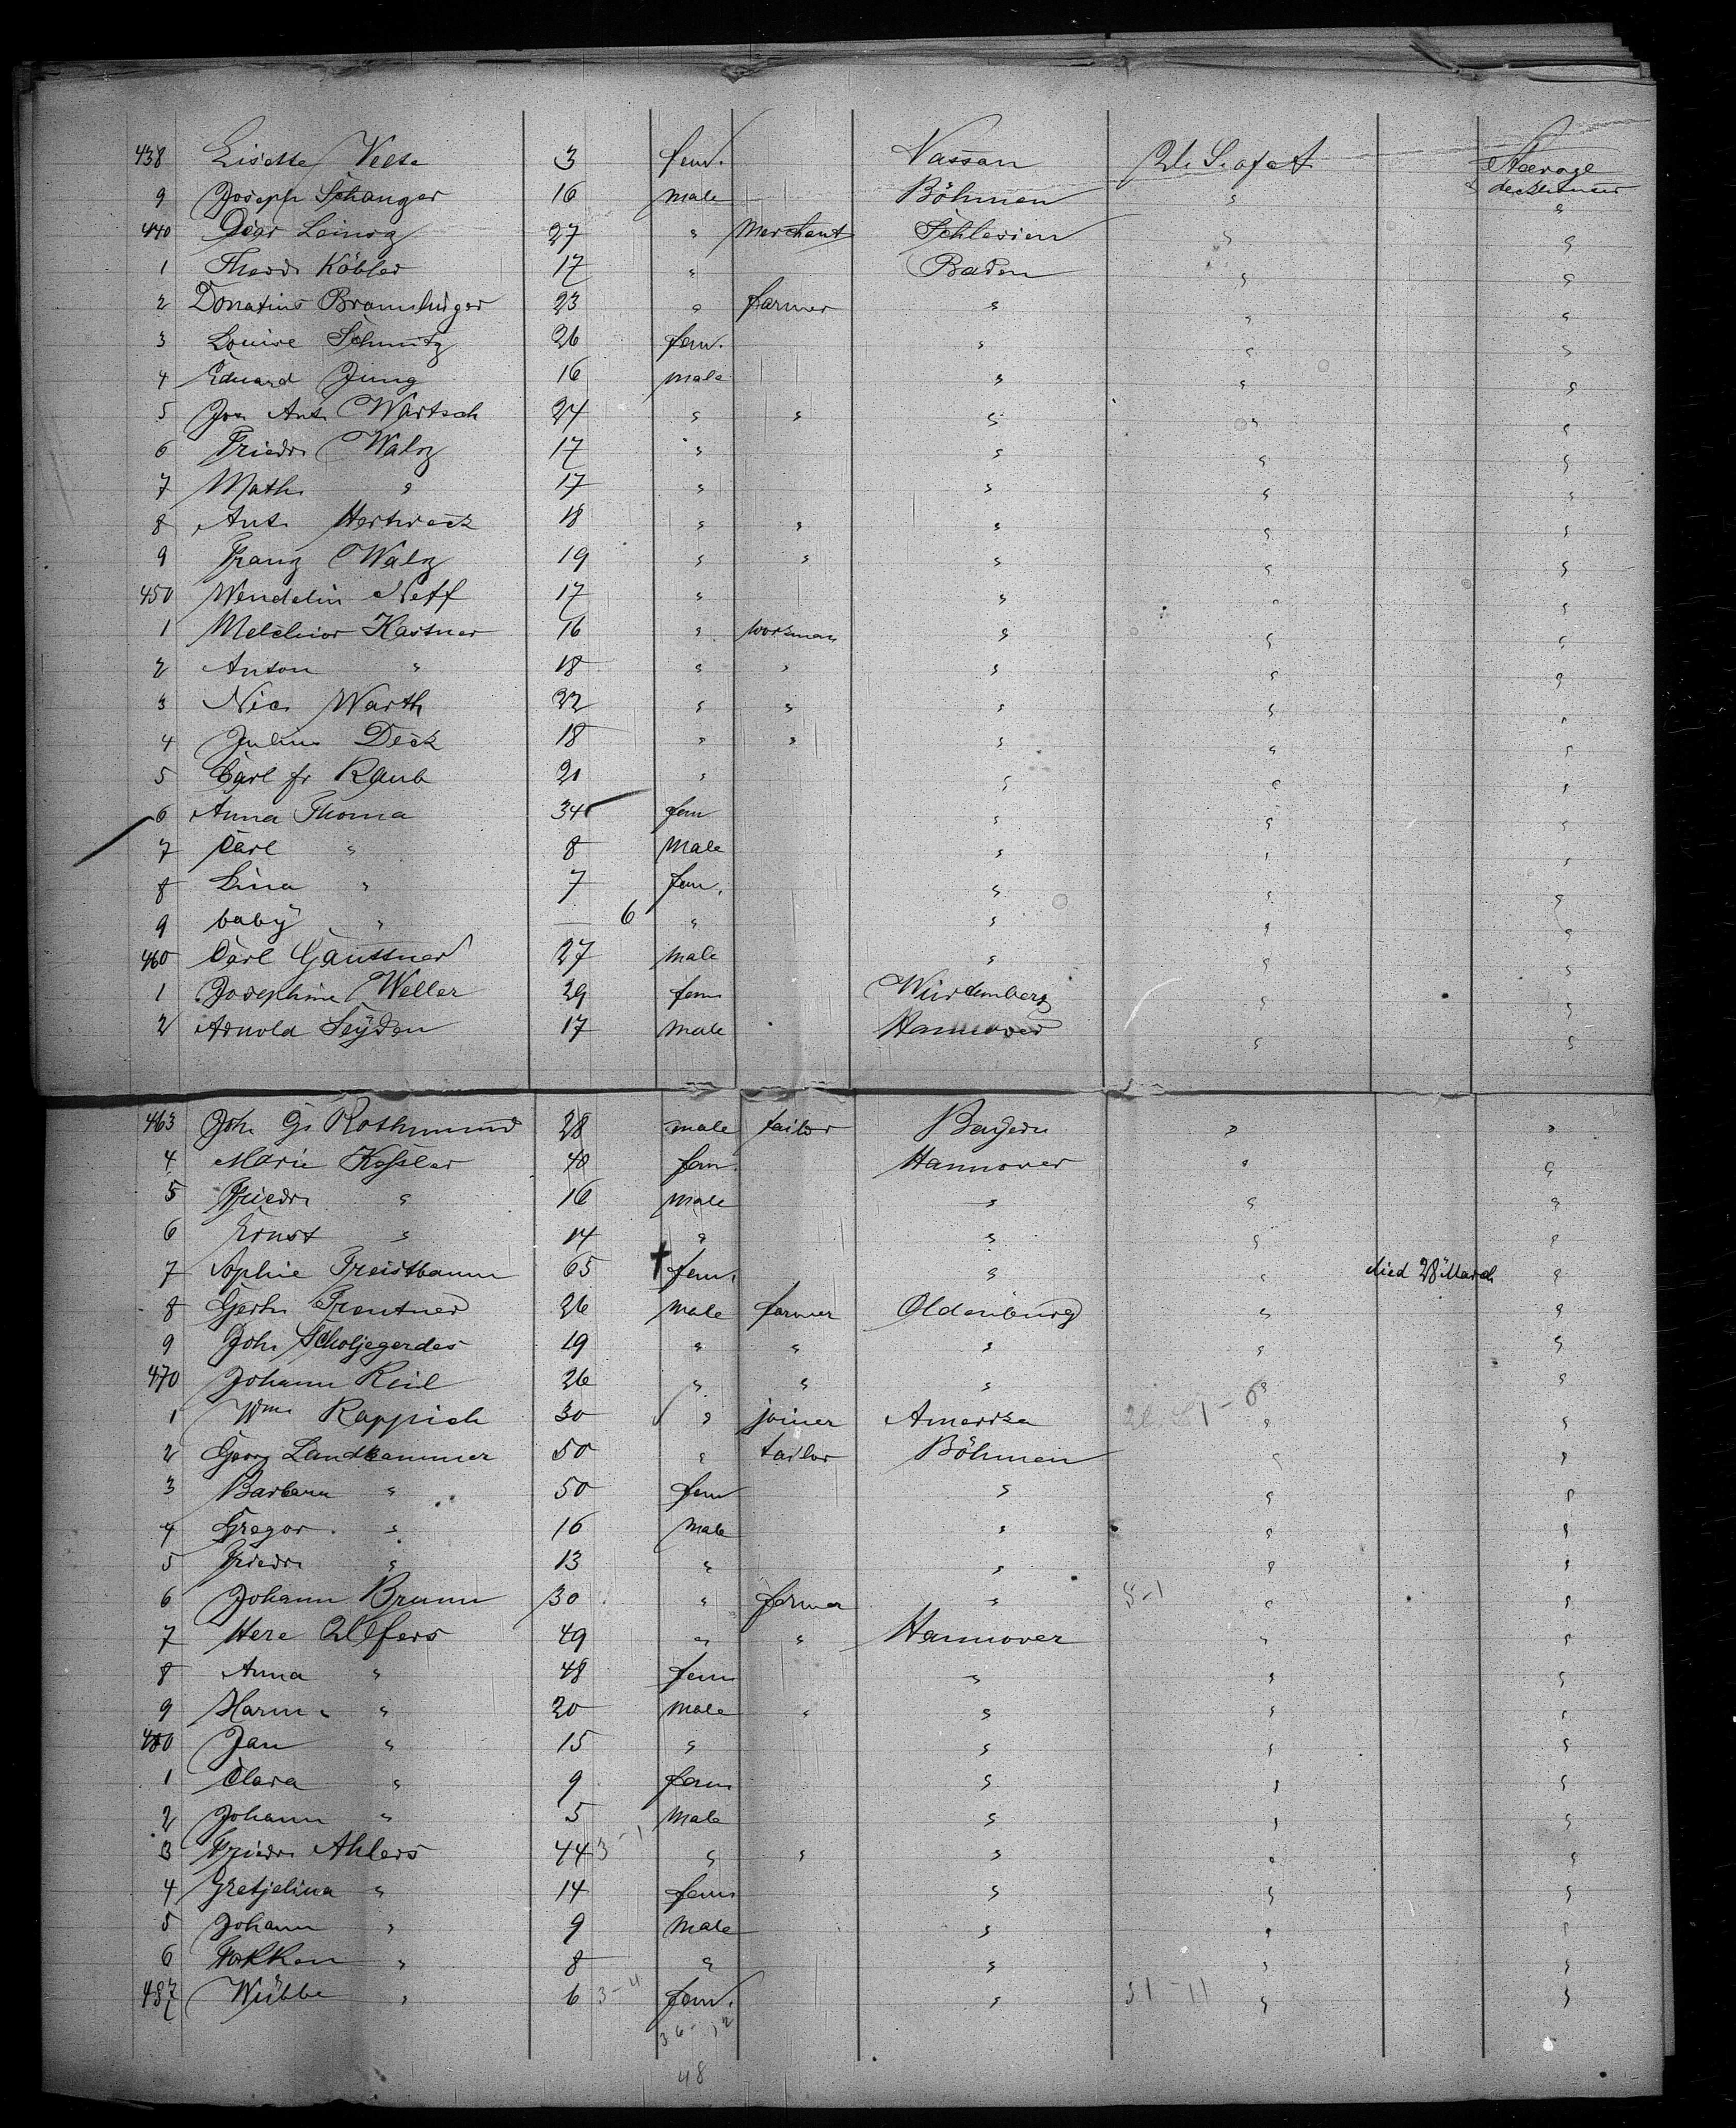 438 Lisette Velte 3 fem. Nassau U. S. of A Steerage
9 Joseph Schanger 16 male Böhmen " deckhouses "
440 27 " Merchant Schlesien " "
1 Theod. Köbler 17 " Baden " "
2 Donatius 23 " farmer " " "
3 Louise Schmitz 26 fem. " " "
4 Eduard Jung 16 male " " "
5 Jos. Ant. Wartsch 24 " " " " "
6 Friedr. Walz 17 " " " "
7 Math. " 17 " " " "
8 Ant. Hertweck 18 " " " " "
9 Franz Walz 19 " " " " "
450 Wendelin Neff 17 " " " "
1 Melchior Kastner 16 " workman " " "
2 Anton " 18 " " " " "
3 Nic. Warth 32 " " " " "
4 Julius Deck 18 " " " " "
5 Carl fr Raub 21 " " " "
6 Anna Thoma 34 fem " " "
7 Carl " 8 Male " " "
8 Lina " 7 fem. " " "
9 baby " — 6 " " " "
460 Carl Gaussner 27 male " " "
1 Josephine Weller 29 fem Würtemberg " "
2 Arnold Seyden 17 male Hannover " "
463 Joh. G. Rothmund 28 male tailor Bayern " "
4 Marie Kessler 40 fem. Hannover " "
5 Friedr. " 16 male " " "
6 Ernst " 14 " " " "
7 Sophie Treistbaum 65 † fem. " " died 28 March "
8 Gerh. Trentner 26 male farmer Oldenburg " "
9 Joh. Scholjegerdes 19 " " " " "
470 Johann Reil 26 " " " " "
1 Wm. Rappich 30 " joiner Amerika 1-6 " "
2 Georg Landkammer 50 " tailor Böhmen " "
3 Barbara " 50 fem " " "
4 Gregor " 16 Male " " "
5 Friedr. " 13 " " " "
6 Johann Brunn 30 " farmer " 5-1 " "
7 49 " " Hannover " "
8 Anna " 48 fem " " "
9 Harm. " 20 male " " " "
480 Jan " 15 " " " "
1 Clara " 9 fem " " "
2 Johann " 5 Male " " "
3 Friedr. Ahlers 44 3-1 " " " " "
4 Gretjelina " 14 fem " " "
5 Johann " 9 Male " " "
6 Fokken " 8 " " " "
487 Wübbe " 6 3-4 fem. " 31-11 " "
36-12
48